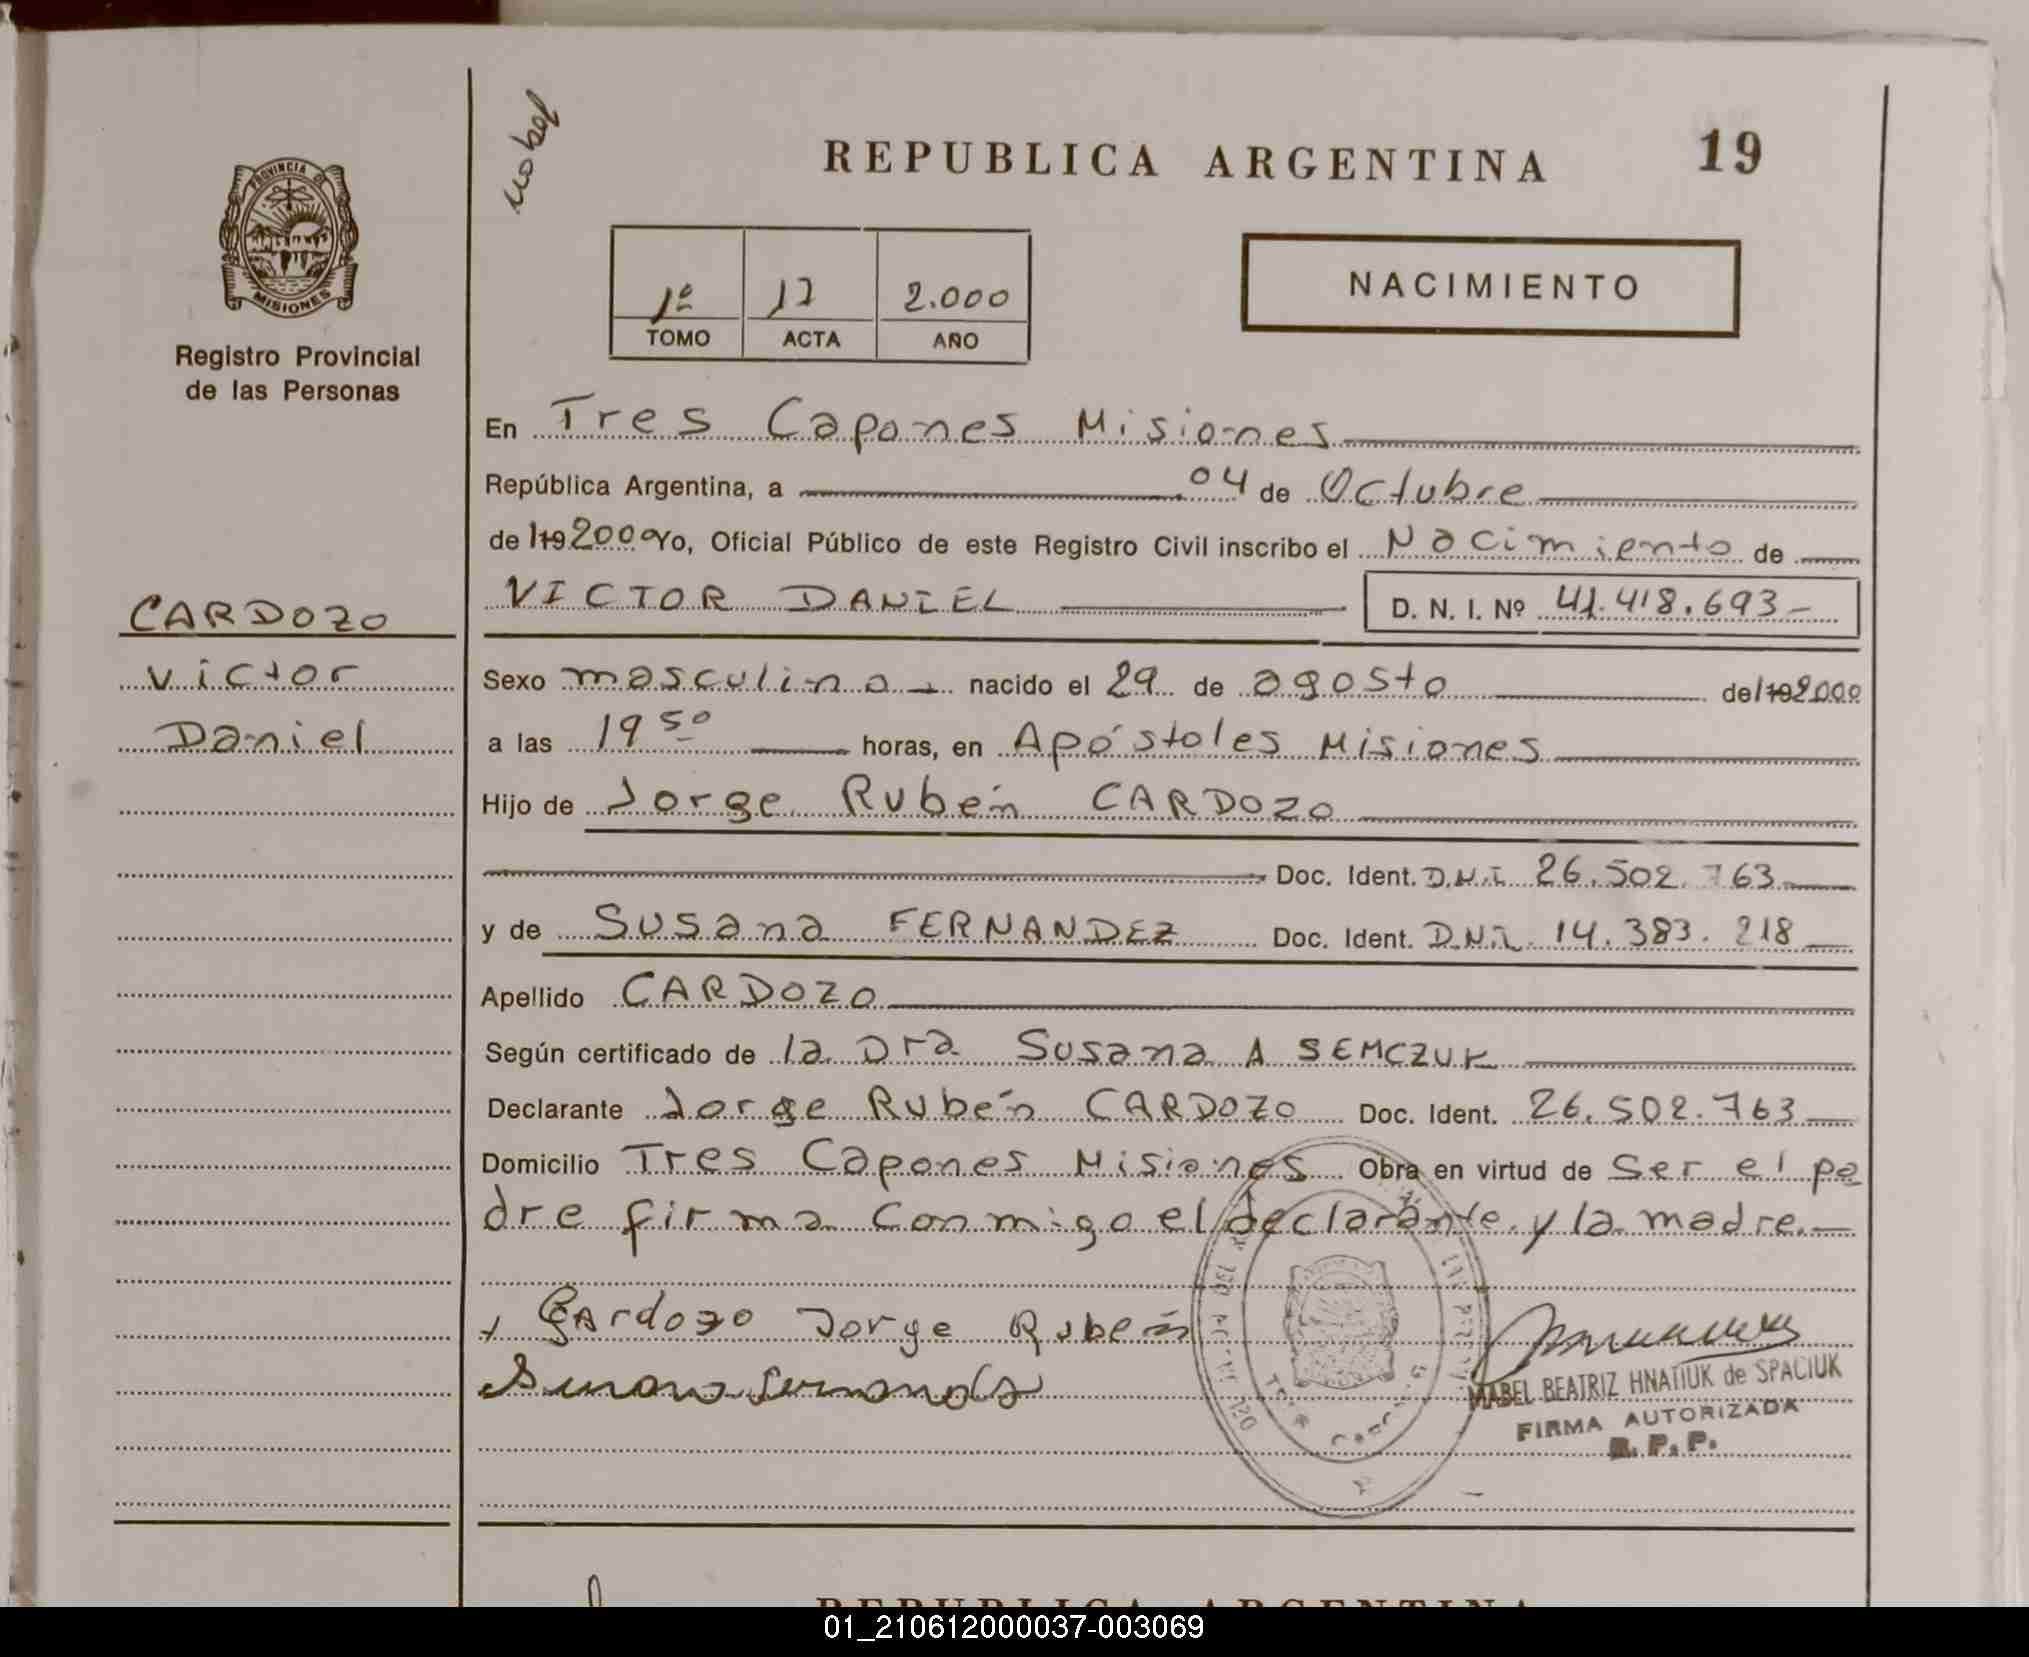 mabel
REPUBLICA ARGENTINA
19
PROVINCIA DE
MISIONES
Registro Provincial
de las Personas
1º 17 2.000
TOMO ACTA AÑO
NACIMIENTO
En Tres Capones Misiones
República Argentina, a 04 de Octubre
de 19 2000 Yo, Oficial Público de este Registro Civil inscribo el Nacimiento de
VICTOR DANIEL D. N. I. Nº 41.418.693-
CARDOZO
Victor
Daniel
Sexo masculino nacido el 29 de agosto de 19 2000
a las 19 50 horas, en Apóstoles Misiones
Hijo de Jorge Rubén CARDOZO
Doc. Ident. D.N.I. 26.502.763
y de Susana FERNANDEZ Doc. Ident. D.N.I. 14.383.218
Apellido CARDOZO
Según certificado de la Dra Susana A SEMCZUK
Declarante Jorge Rubén CARDOZO Doc. Ident. 26.502.763
Domicilio Tres Capones Misiones Obra en virtud de Ser el pa
dre firma Conmigo el declarante y la madre.
x Cardozo Jorge Rubén
Susana Fernandez
MABEL BEATRIZ HNATIUK de SPACIUK
FIRMA AUTORIZADA
R. P. P.
REPUBLICA ARGENTINA
01_210612000037-003069